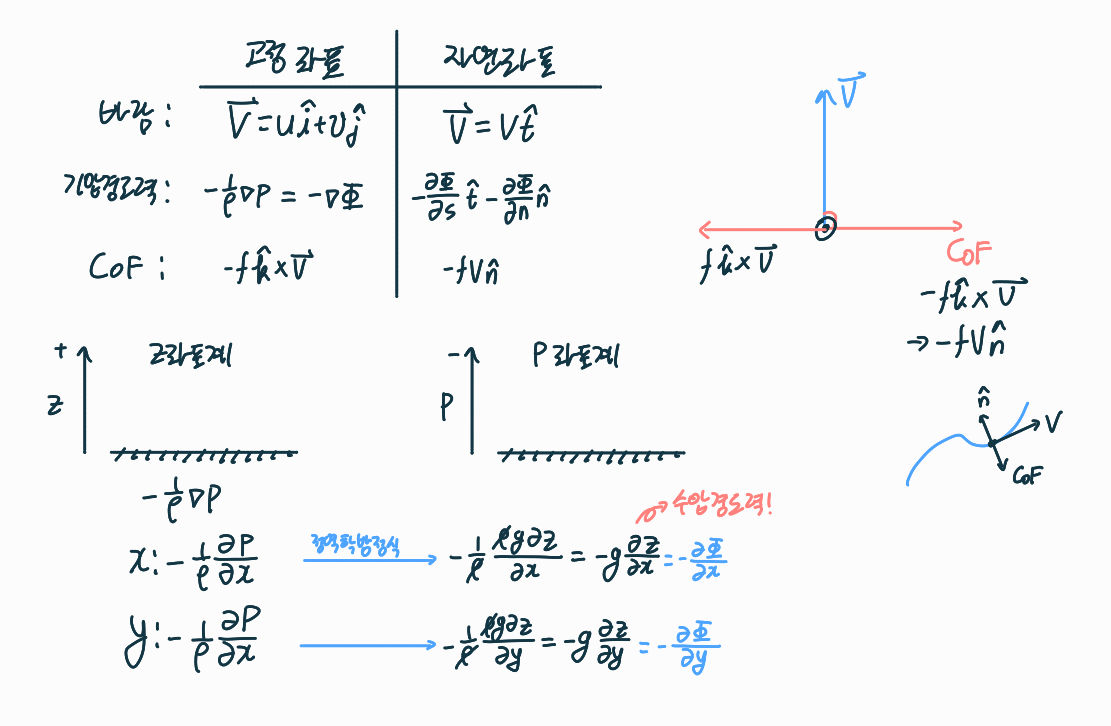 고정좌표 자연좌표
바람: V⃗=uî+vĵ V⃗=Vt̂
기압경도력: -1/ρ ∇P = -∇Φ -∂Φ/∂s t̂ - ∂Φ/∂n n̂
CoF: -fk̂×V⃗ -fVn̂
V⃗
fk̂×V⃗
CoF
-fk̂×V⃗
→ -fVn̂
+ z좌표계
z
- P좌표계
P
n̂
V
CoF
-1/ρ ∇P
수압경도력!
x: -1/ρ ∂P/∂x 정역학방정식 -1/ρ ρg∂z/∂x = -g ∂z/∂x = -∂Φ/∂x
y: -1/ρ ∂P/∂x -1/ρ ρg∂z/∂y = -g ∂z/∂y = -∂Φ/∂y